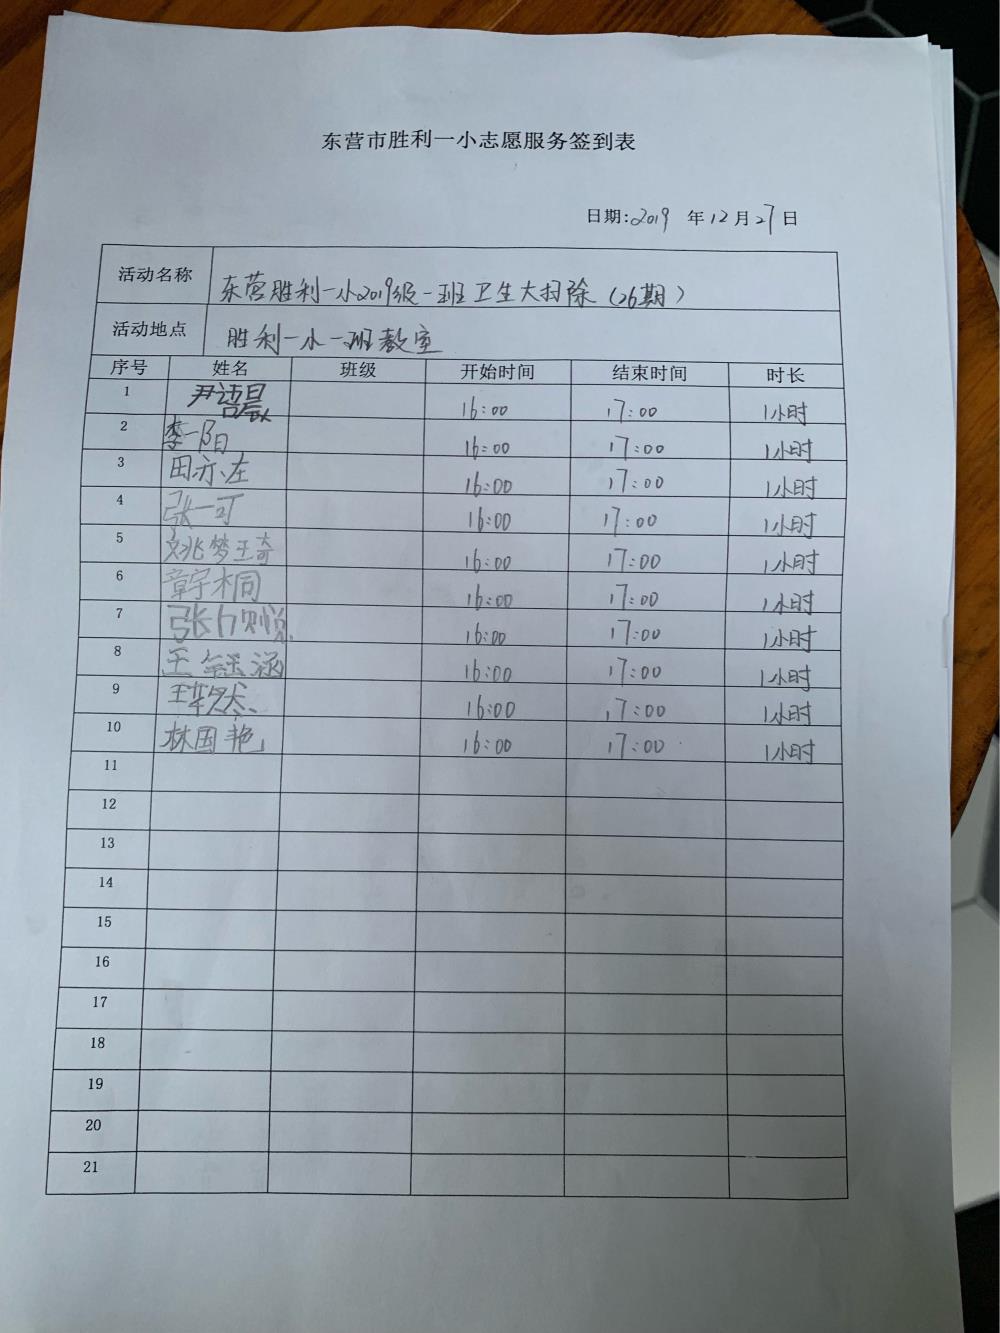 东营市胜利一小志愿服务签到表
日期:2019 年 12 月 27 日
活动名称 东营胜利一小2019级一班卫生大扫除（26期）
活动地点 胜利一小一班教室
序号 姓名 班级 开始时间 结束时间 时长
1 尹语晨 16:00 17:00 1小时
2 李一阳 16:00 17:00 1小时
3 田亦左 16:00 17:00 1小时
4 张一可 16:00 17:00 1小时
5 姚梦琦 16:00 17:00 1小时
6 章宇桐 16:00 17:00 1小时
7 张 悦 16:00 17:00 1小时
8 王钰涵 16:00 17:00 1小时
9 王 然 16:00 17:00 1小时
10 林国艳 16:00 17:00 1小时
11
12
13
14
15
16
17
18
19
20
21